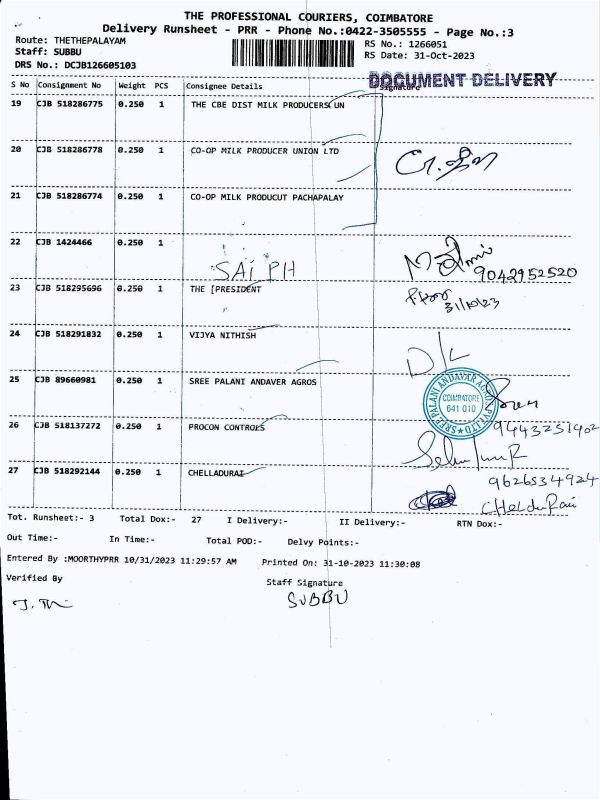 THE PROFESSIONAL COURIERS, COIMBATORE
Delivery Runsheet - PRR - Phone No.:0422-3505555 - Page No.:3
Route: THETHEPALAYAM
RS No.: 1266051
Staff: SUBBU
RS Date: 31-Oct-2023
DRS No.: DCJB126605103
DOCUMENT DELIVERY
S No Consignment No Weight PCS Consignee Details Signature
19 CJB 518286775 0.250 1 THE CBE DIST MILK PRODUCERS UN
20 CJB 518286778 0.250 1 CO-OP MILK PRODUCER UNION LTD
21 CJB 518286774 0.250 1 CO-OP MILK PRODUCUT PACHAPALAY
22 CJB 1424466 0.250 1
SAI PH
9042952520
23 CJB 518295696 0.250 1 THE [PRESIDENT
31/10/23
24 CJB 518291832 0.250 1 VIJYA NITHISH
D/L
25 CJB 89660981 0.250 1 SREE PALANI ANDAVER AGROS
SREE PALANI ANDAVAR AGRO PVT LTD
COIMBATORE
641 010
26 CJB 518137272 0.250 1 PROCON CONTROLS
9443251902
27 CJB 518292144 0.250 1 CHELLADURAI
9626534924
Cheldurai
Tot. Runsheet:- 3 Total Dox:- 27 I Delivery:- II Delivery:- RTN Dox:-
Out Time:- In Time:- Total POD:- Delvy Points:-
Entered By :MOORTHYPRR 10/31/2023 11:29:57 AM Printed On: 31-10-2023 11:30:08
Verified By Staff Signature
SUBBU